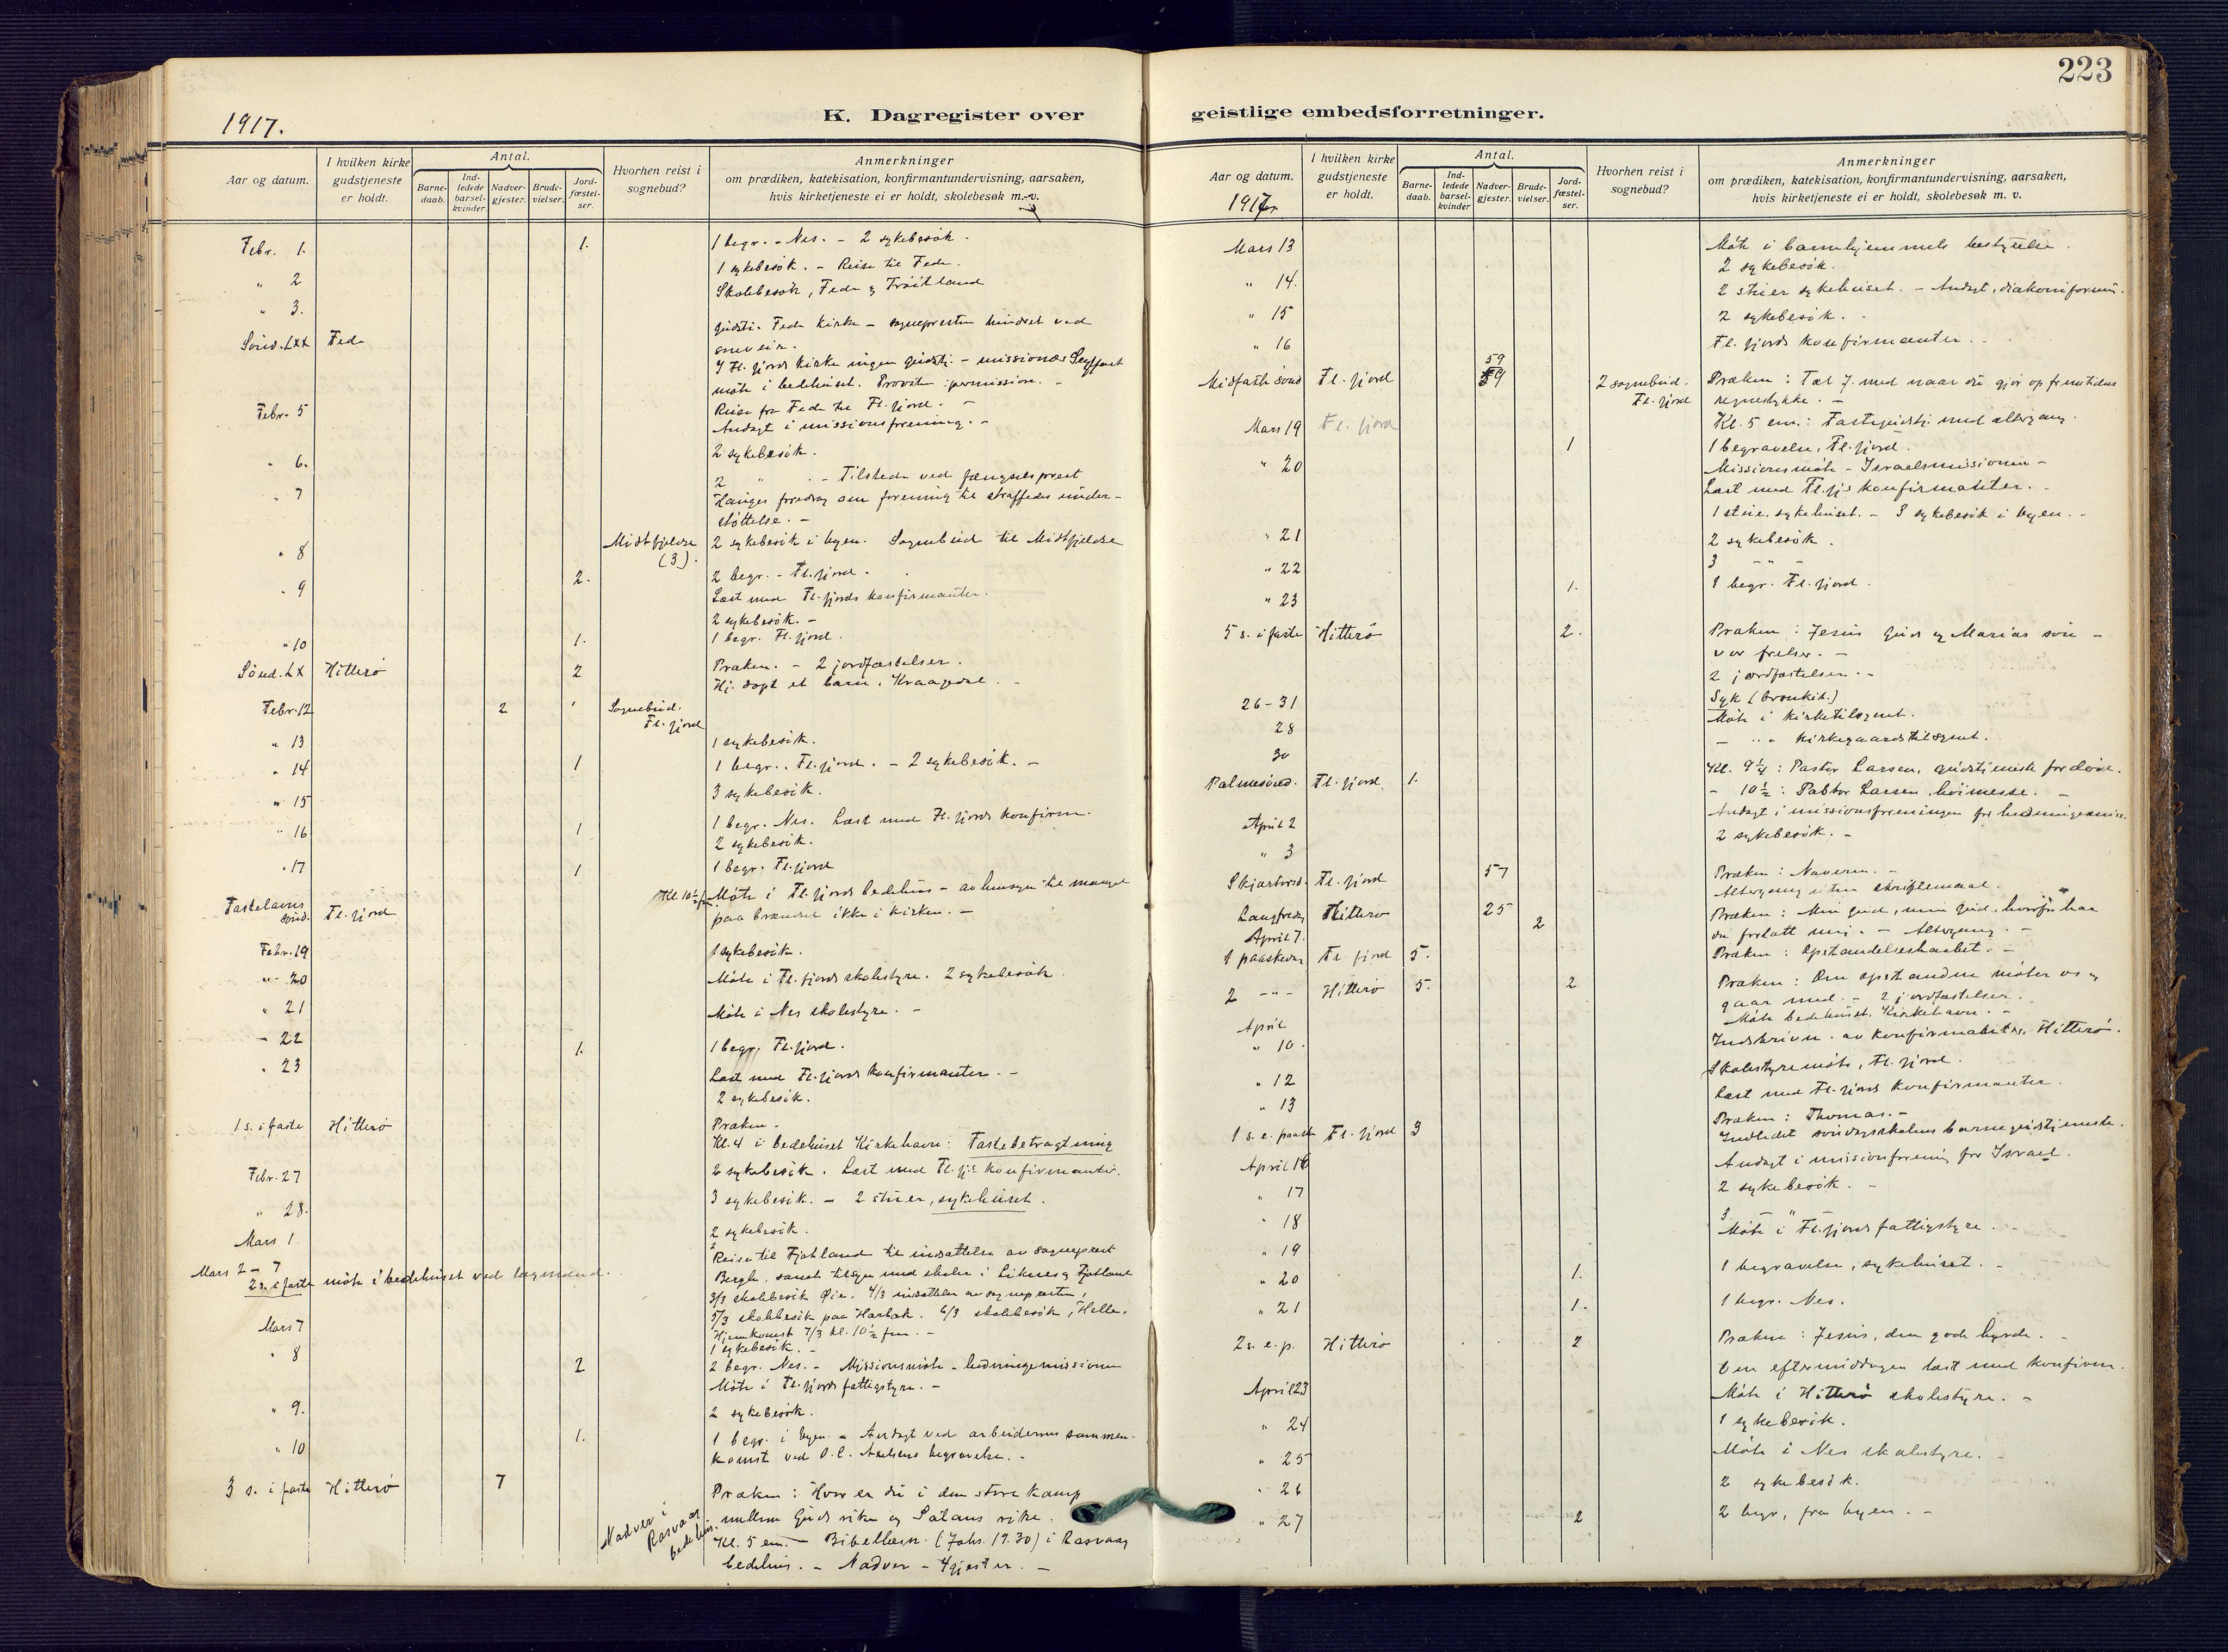 223
K. Dagregister over
geistlige embedsforretninger.
1917.
Aar og datum.
I hvilken kirke gudstjeneste er holdt.
Antal.
Barne-daab.
Ind-ledede barsel-kvinder.
Nadver-gjester.
Brude-vielser.
Jord-fæstel-ser.
Hvorhen reist i sognebud?
Anmerkninger
om prædiken, katekisation, konfirmantundervisning, aarsaken,
hvis kirketjeneste ei er holdt, skolebesøk m. v.
Febr. 1. 1. 1 begr. - Nes. - 2 sykebesök.
1 sykebesök. - Reise til Feda.
" 2 Skolebesök, Feda og Tröitland
" 3.
Sönd. LXX Feda gudstj. Feda kirke - sognepresten hindret ved
sneveir.
I Fl.fjords kirke ingen gudstj. - missionær
möte i bedehuset. Provsten permission. -
Febr. 5 Reise fra Feda til Fl.fjord. -
Andagt i missionsforening. -
" 6. 2 sykebesök.
" 7 2 " - Tilstede ved fængselsprest
Hauges foredrag om forening til straffedes under-
støttelse. -
" 8 Midtfjeldse (3). 2 sykebesök i byen. Sognebud til Midtfjeldse
" 9 2. 2 begr. - Fl.fjord.
Læst med Fl.fjords konfirmanter.
2 sykebesök. -
" 10 1. 1 begr. Fl.fjord.
Sönd. LX Hitterö 2 Præken. - 2 jordfæstelser.
Hj. döpt et barn
Febr. 12 2 Sognebud. Fl.fjord
" 13 1 sykebesök.
" 14 1 1 begr. Fl.fjord. - 2 sykebesök. -
" 15 3 sykebesök.
" 16 1 1 begr. Nes. Læst med Fl.fjords konfirm.
2 sykebesök.
" 17 1 1 begr. Fl.fjord
Fastelavns sönd. Fl.fjord Kl. 10½ fm. Möte i Fl.fjords bedehus - av hensyn til mangel
paa brændsel ikke i kirken. -
Febr. 19 1 sykebesök.
" 20 Möte i Fl.fjords skolestyre. 2 sykebesök
" 21 Möte i Nes skolestyre. -
- 22 1. 1 begr. Fl.fjord.
" 23 Læst med Fl.fjords konfirmanter. -
2 sykebesök.
1 s. i faste Hitterö Præken.
Kl. 4 i bedehuset Kirkehavn: Fastebetragtning
Febr. 27 2 sykebesök. Læst med Fl.fj.s konfirmanter.
" 28. 3 sykebesök. - 2 stuer, sykehuset.
Mars 1 2 sykebesök.
Mars 2 - 7 Reise til Fjotland til indsættelse av sogneprest
2 s. i faste möte i bedehuset ved lægmænd.
Bergh, samt tilsyn med skoler i Liknes og Fjotland
3/3 skolebesök Öie. 4/3 indsættelse av sogneprest,
5/3 skolebesök paa 6/3 skolebesök, Helle.
Mars 7 Hjemkomst 7/3 kl. 10½ fm. -
1 sykebesök. -
" 8 2 2 begr. Nes. - Missionsmöte - hedningemissionen
Möte i Fl.fjords fattigstyre. -
" 9. 2 sykebesök.
" 10 1. 1 begr. i byen. - Andagt ved arbeidernes sammen-
komst ved O.C. Axelsens begravelse. -
3 s. i faste Hitterö 7 Præken: Hvor er du i den store kamp
mellem Guds rike og Satans rike.
Nadver i Rasvaag bedehus. Kl. 5 em. - Bibellæsn. (Joh. 19.30) i Rasvaag
bedehus. - Nadver - 7 gjester. -
Aar og datum.
1917.
I hvilken kirke gudstjeneste er holdt.
Antal.
Barne-daab.
Ind-ledede barsel-kvinder
Nadver-gjester.
Brude-vielser.
Jord-fæstel-ser.
Hvorhen reist i sognebud?
Anmerkninger
om prædiken, katekisation, konfirmantundervisning, aarsaken,
hvis kirketjeneste ei er holdt, skolebesøk m. v.
Mars 13 Möte i barnehjemmets bestyrelse.
2 sykebesök.
" 14. 2 stuer sykehuset. - Andagt, diakoniforen.
" 15 2 sykebesök.
" 16 Fl.fjords konfirmanter.
Midfaste sönd Fl.fjord 59 2 sognebud. Fl.fjord Præken: Tæl J. med naar du gjör op fremtidens
regnestykke. -
Kl. 5 em.: Fastegudstj. med altergang.
Mars 19 Fl.fjord 1 1 begravelse, Fl.fjord.
" 20 Missionsmöte - Israelsmissionen -
Læst med Fl.fj.s konfirmanter.
1 stue, sykehuset. - 3 sykebesök i byen. -
" 21 2 sykebesök.
" 22 3 - " -
" 23 1. 1 begr. Fl.fjord.
5 s. i faste Hitterö 2. Præken: Jesus Guds og Marias sön -
vor frelser. -
2 jordfæstelser. -
26-31 Syk (bronkit.)
28 Möte i kirketilsynet.
30 - " - kirkegaardstilsynet.
Palmesönd. Fl.fjord. 1. Kl. 9¼: Pastor Larsen, gudstjeneste for döve.
- 10½: Pastor Larsen, höimesse. -
April 2 Andagt i missionsforeningen for hedningemiss.
" 3 2 sykebesök. -
Skjærtorsd. Fl.fjord 57 Præken: Nadveren. -
Altergang uten skriftemaal.
Langfredag Hitterö 25 Præken: Min gud, min gud, hvorfor har
du forlatt mig. - Altergang. -
April 7. 2
1 paaskedag Fl.fjord 5. Præken: Opstandelseshaabet. -
2 - " - Hitterö 5. 2 Præken: Den opstandne möter os og
gaar med. - 2 jordfæstelser.
Möte bedehuset, Kirkehavn. -
April " 10. Indskrivn. av konfirmanter, Hitterö.
Skolestyremöte, Fl.fjord.
" 12 Læst med Fl.fjords konfirmanter.
" 13
1 s. e. paaske Fl.fjord 3 Præken: Thomas. -
Indledet söndagsskolens barnegudstjeneste.
April 16 Andagt i missionforening for Israel.
" 17 2 sykebesök. -
" 18 3 - " -
Möte i Fl.fjords fattigstyre. -
" 19 1 begravelse, sykehuset. -
" 20 1.
" 21 1. 1 begr. Nes.
2 s. e. p. Hitterö 2 Præken: Jesus, den gode hyrde. -
Om eftermiddagen læst med konfirm.
April 23 Möte i Hitterö skolestyre. -
" 24 1 sykebesök.
" 25 Möte i Nes skolestyre. -
" 26 2 sykebesök.
" 27 2 2 begr, fra byen. -